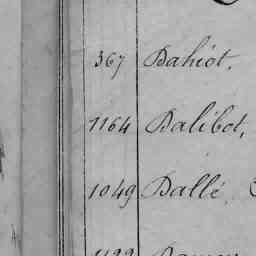 367 Bahiot.
1164 Balibot,
1049 Ballé,